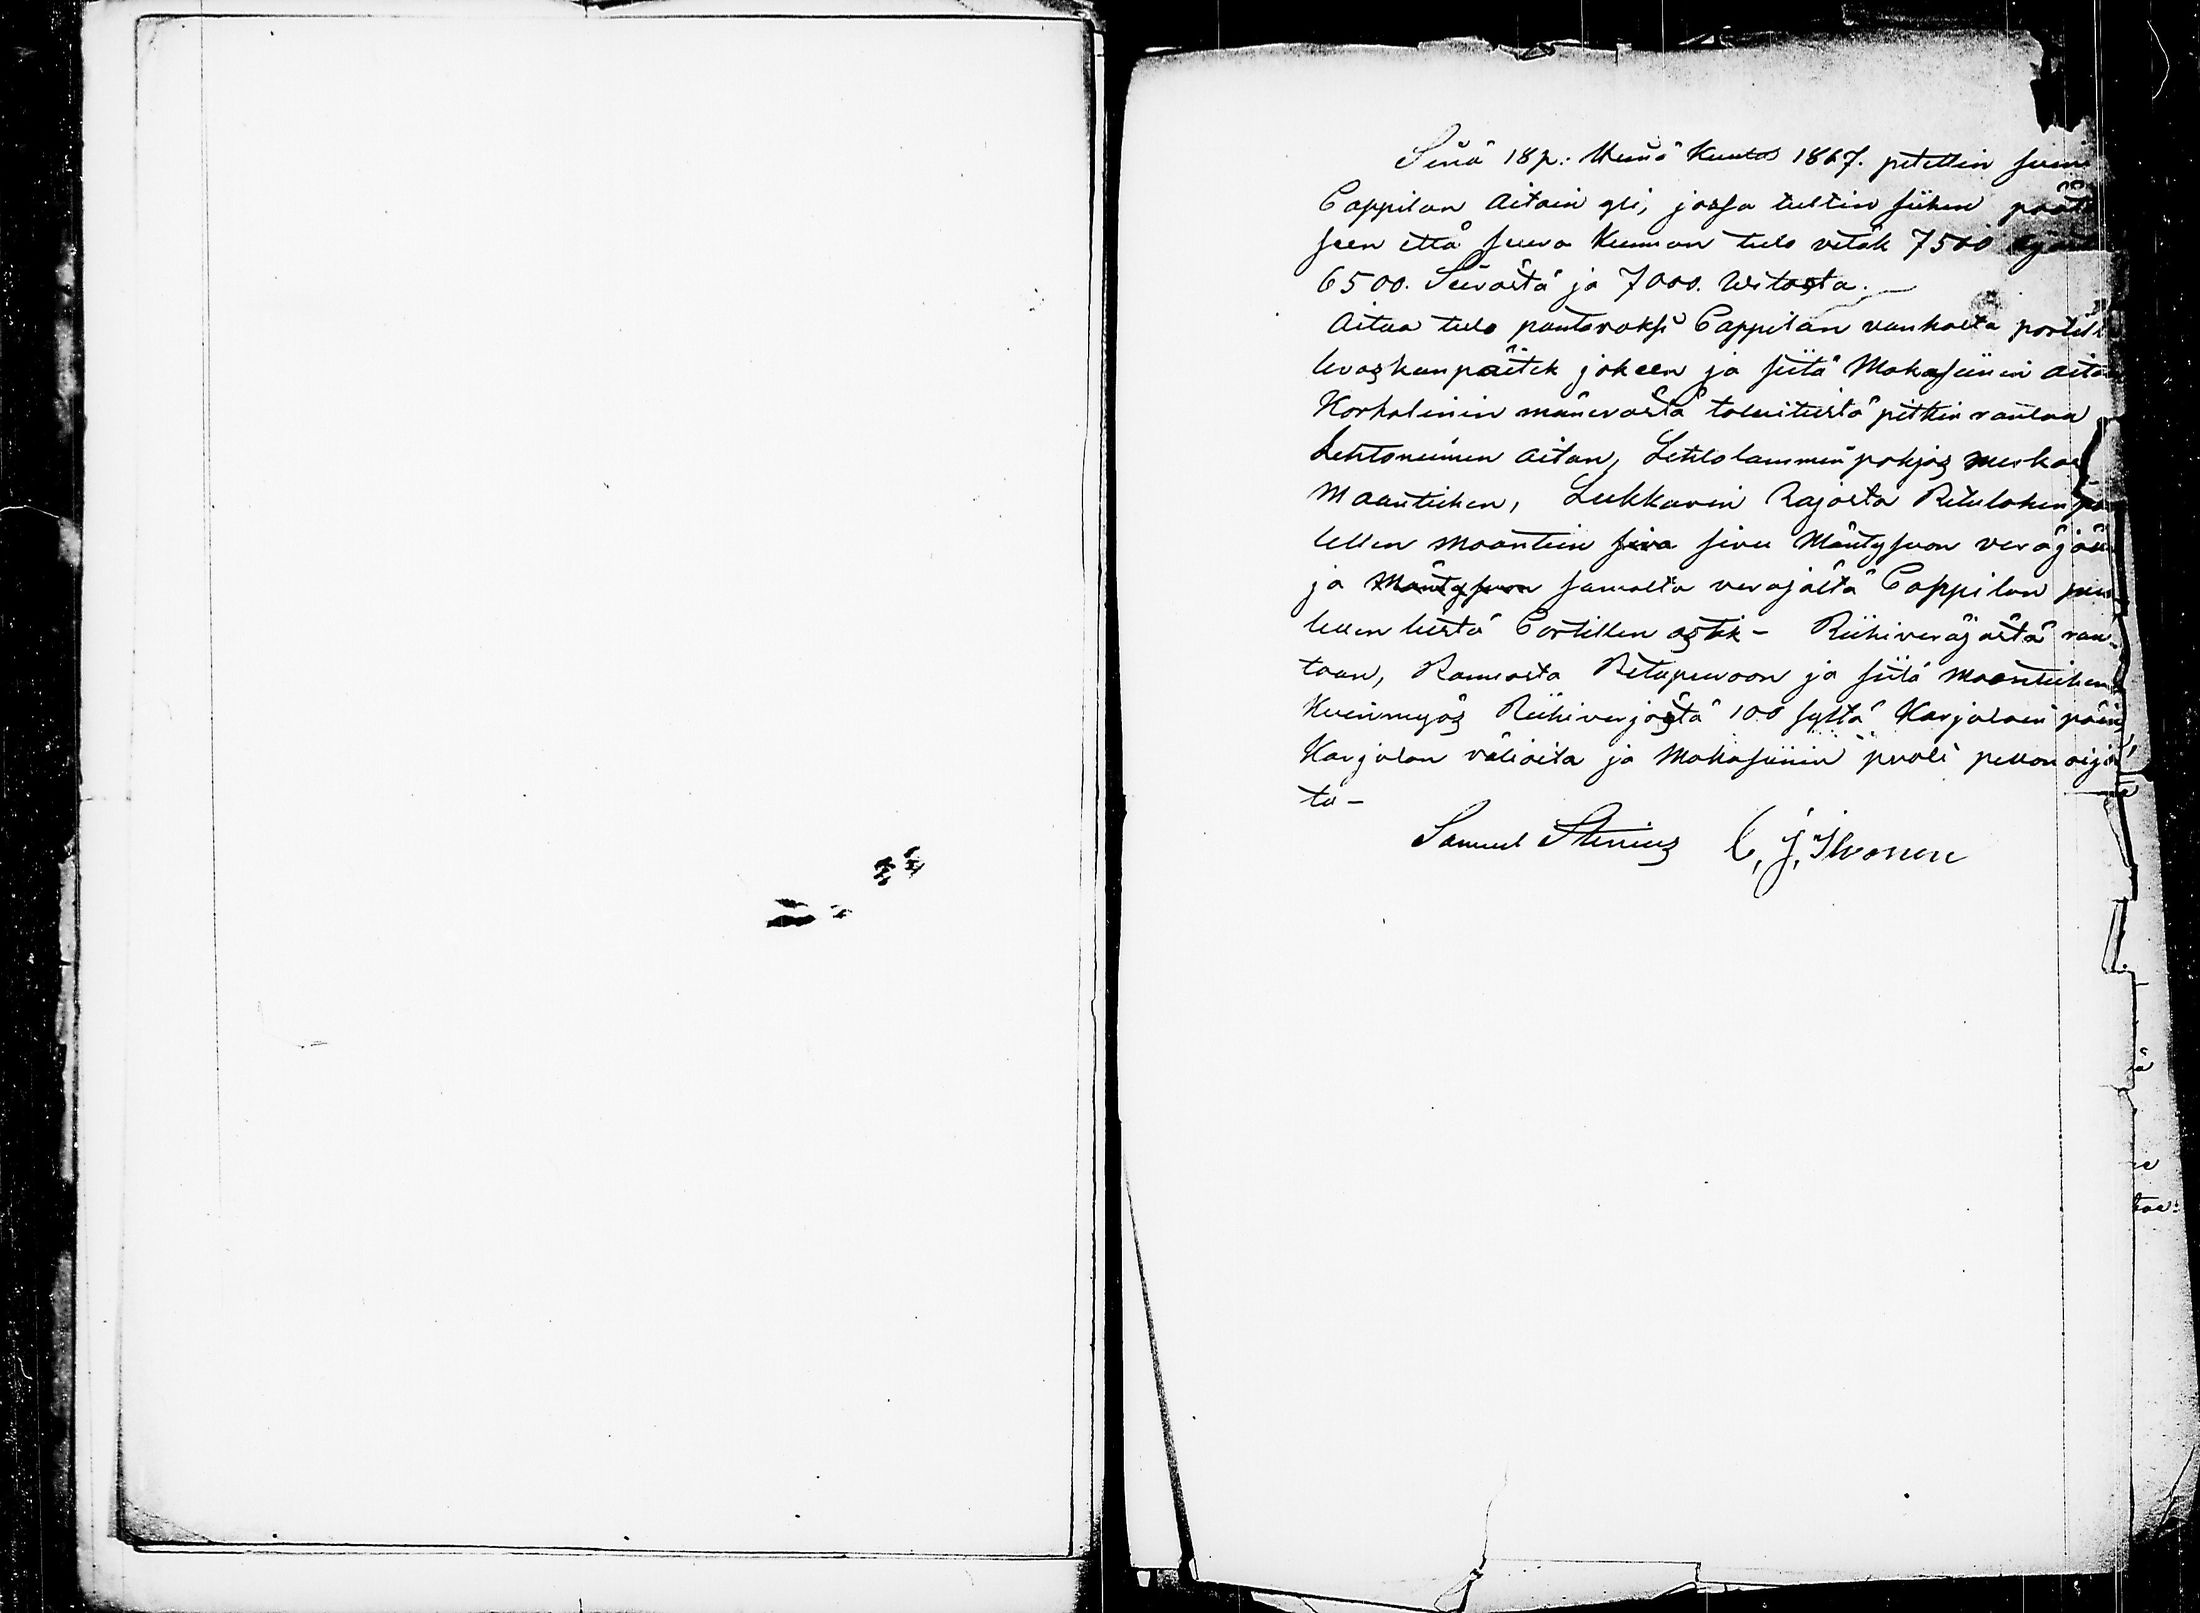 Sinä 18 p: Kesä Kuuta 1867. pitettin syyni
Cappilan Aitain yli, jossa tultin siihen päät
seen että seura Kunnan tulo vetäk 7500
6500. Seivästä ja 7000. Witasta.
Aitaa tulo pantavaksi Cappilan vanhasta portist
luoskunpäitek jokeen ja siitä Makasiinin aitan
Korholinin toluitiestä pitkin rantaa
Lehtoniemen Aitan, Lehtolammin pohjas
Maantiehen, Lukkarin Rajasta Retulahen puo
lellen Maantiein siva sivu Mäntysuon veräjään
ja Mäntysuon samalta veräjältä Cappilan puo
lellen tiestä Portillen astik - Riihiveräjästä ran-
taan, Rannasta Retupuroon ja siitä Maantiehen
Kuinmyös Riihiverjästä 100 syltä Karjalaan päin
Karjalan väliaita ja Makasiinin puoli pellon aija
ta -
Samuel Stenius C. J. Ihvonen
ä
taa: